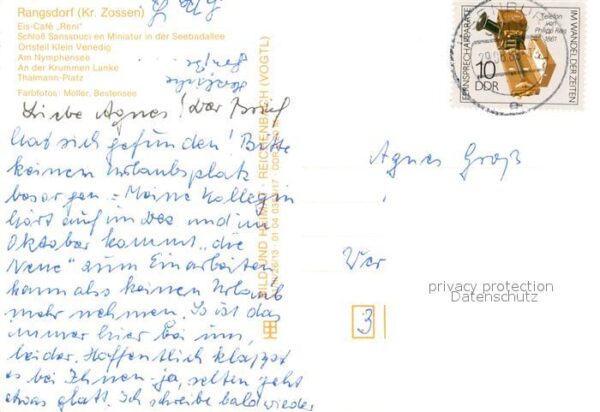 Rangsdorf (Kr. Zossen)
Eis-Café „Reni"
Schloß Sanssouci en Miniatur in der Seebadallee
Ortsteil Klein Venedig
Am Nymphensee
An der Krummen Lanke
Thälmann-Platz
Farbfotos: Müller, Bestensee
Liebe Agnes! Der Brief
hat sich gefunden! Bitte
keinen Urlaubsplatz
besorgen - Meine Kollegin
hört auf im Dez und im
Oktober kommt „die
Neue" zum Einarbeiten
kann also keinen Urlaub
mehr nehmen. So ist das
immer hier bei uns,
leider. Hoffentlich klappt
es bei Ihnen - ja, selten geht
etwas glatt. Ich schreibe bald wieder
Herzliche
Grüße
BILD UND HEIMAT · REICHENBACH (VOGTL)
Agnes Groß
Ver
3
privacy protection
Datenschutz
FERNSPRECHAPPARATE
IM WANDEL DER ZEITEN
Telefon
von
Philipp Reis
1861
10
DDR